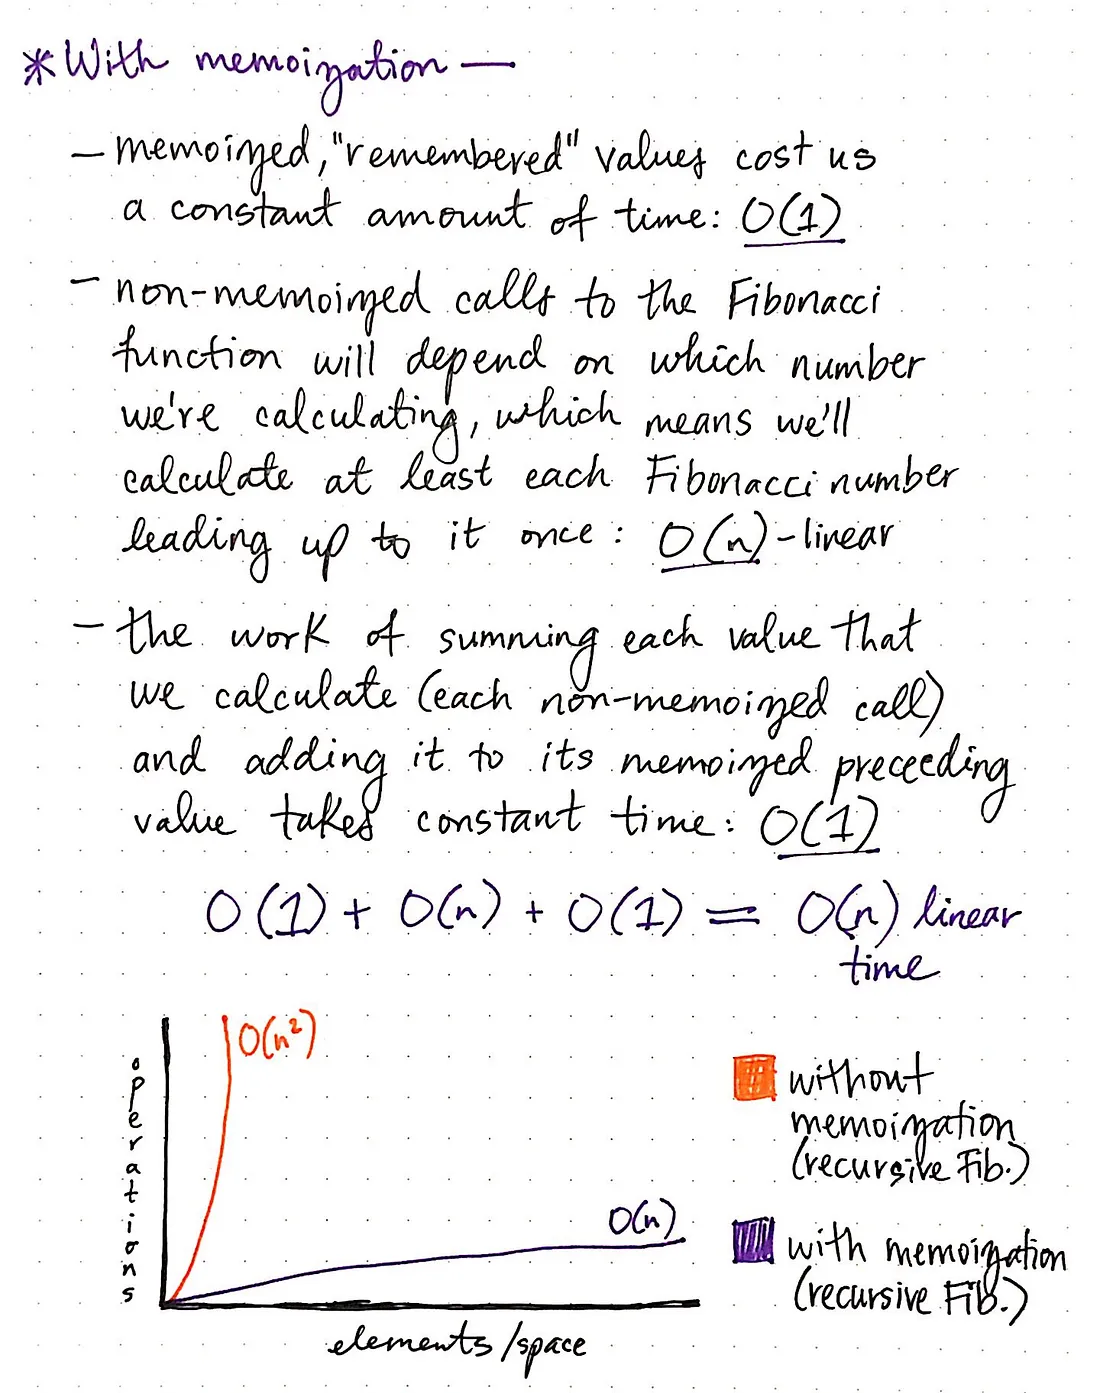 *With memoization —
— memoized, "remembered" values cost us
a constant amount of time: O(1)
- non-memoized calls to the Fibonacci
function will depend on which number
we're calculating, which means we'll
calculate at least each Fibonacci number
leading up to it once: O(n)-linear
- the work of summing each value that
we calculate (each non-memoized call)
and adding it to its memoized preceeding
value takes constant time: O(1)
O(1) + O(n) + O(1) = O(n) linear
time
operations
O(n²)
O(n)
elements/space
without
memoization
(recursive Fib.)
with memoization
(recursive Fib.)